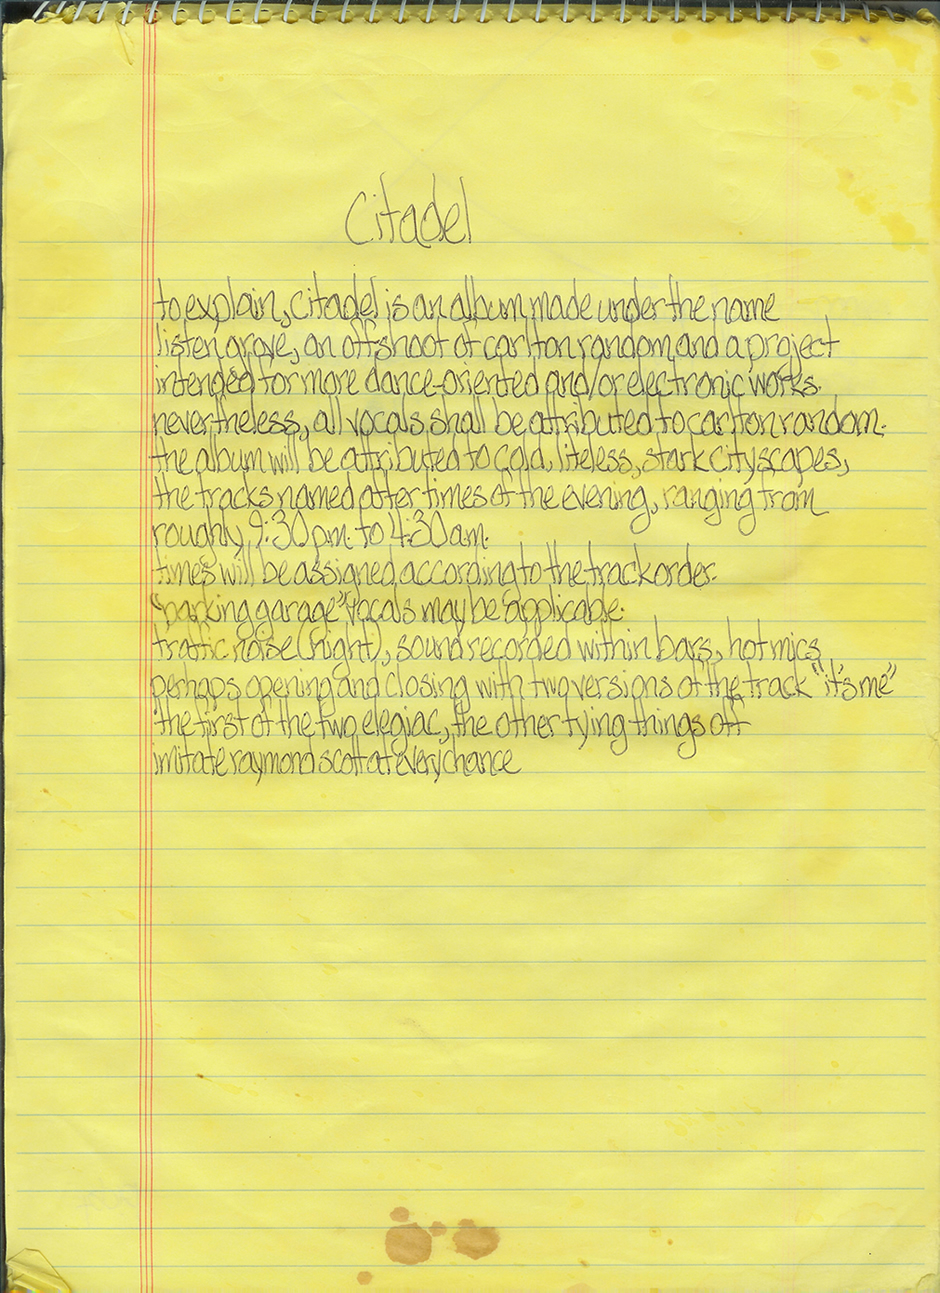 Citadel
to explain, citadel is an album made under the name
listen grove, an offshoot of carlton random and a project
intended for more dance-oriented and/or electronic works.
nevertheless, all vocals shall be attributed to carlton random.
the album will be attributed to cold, lifeless, stark cityscapes,
the tracks named after times of the evening, ranging from
roughly 9:30 p.m. to 4:30 a.m.
times will be assigned according to the track order.
"parking garage" vocals may be applicable.
traffic noise (night), sound recorded within bars, hot mics
perhaps opening and closing with two versions of the track "it's me"
the first of the two elegiac, the other tying things off
imitate raymond scott at every chance